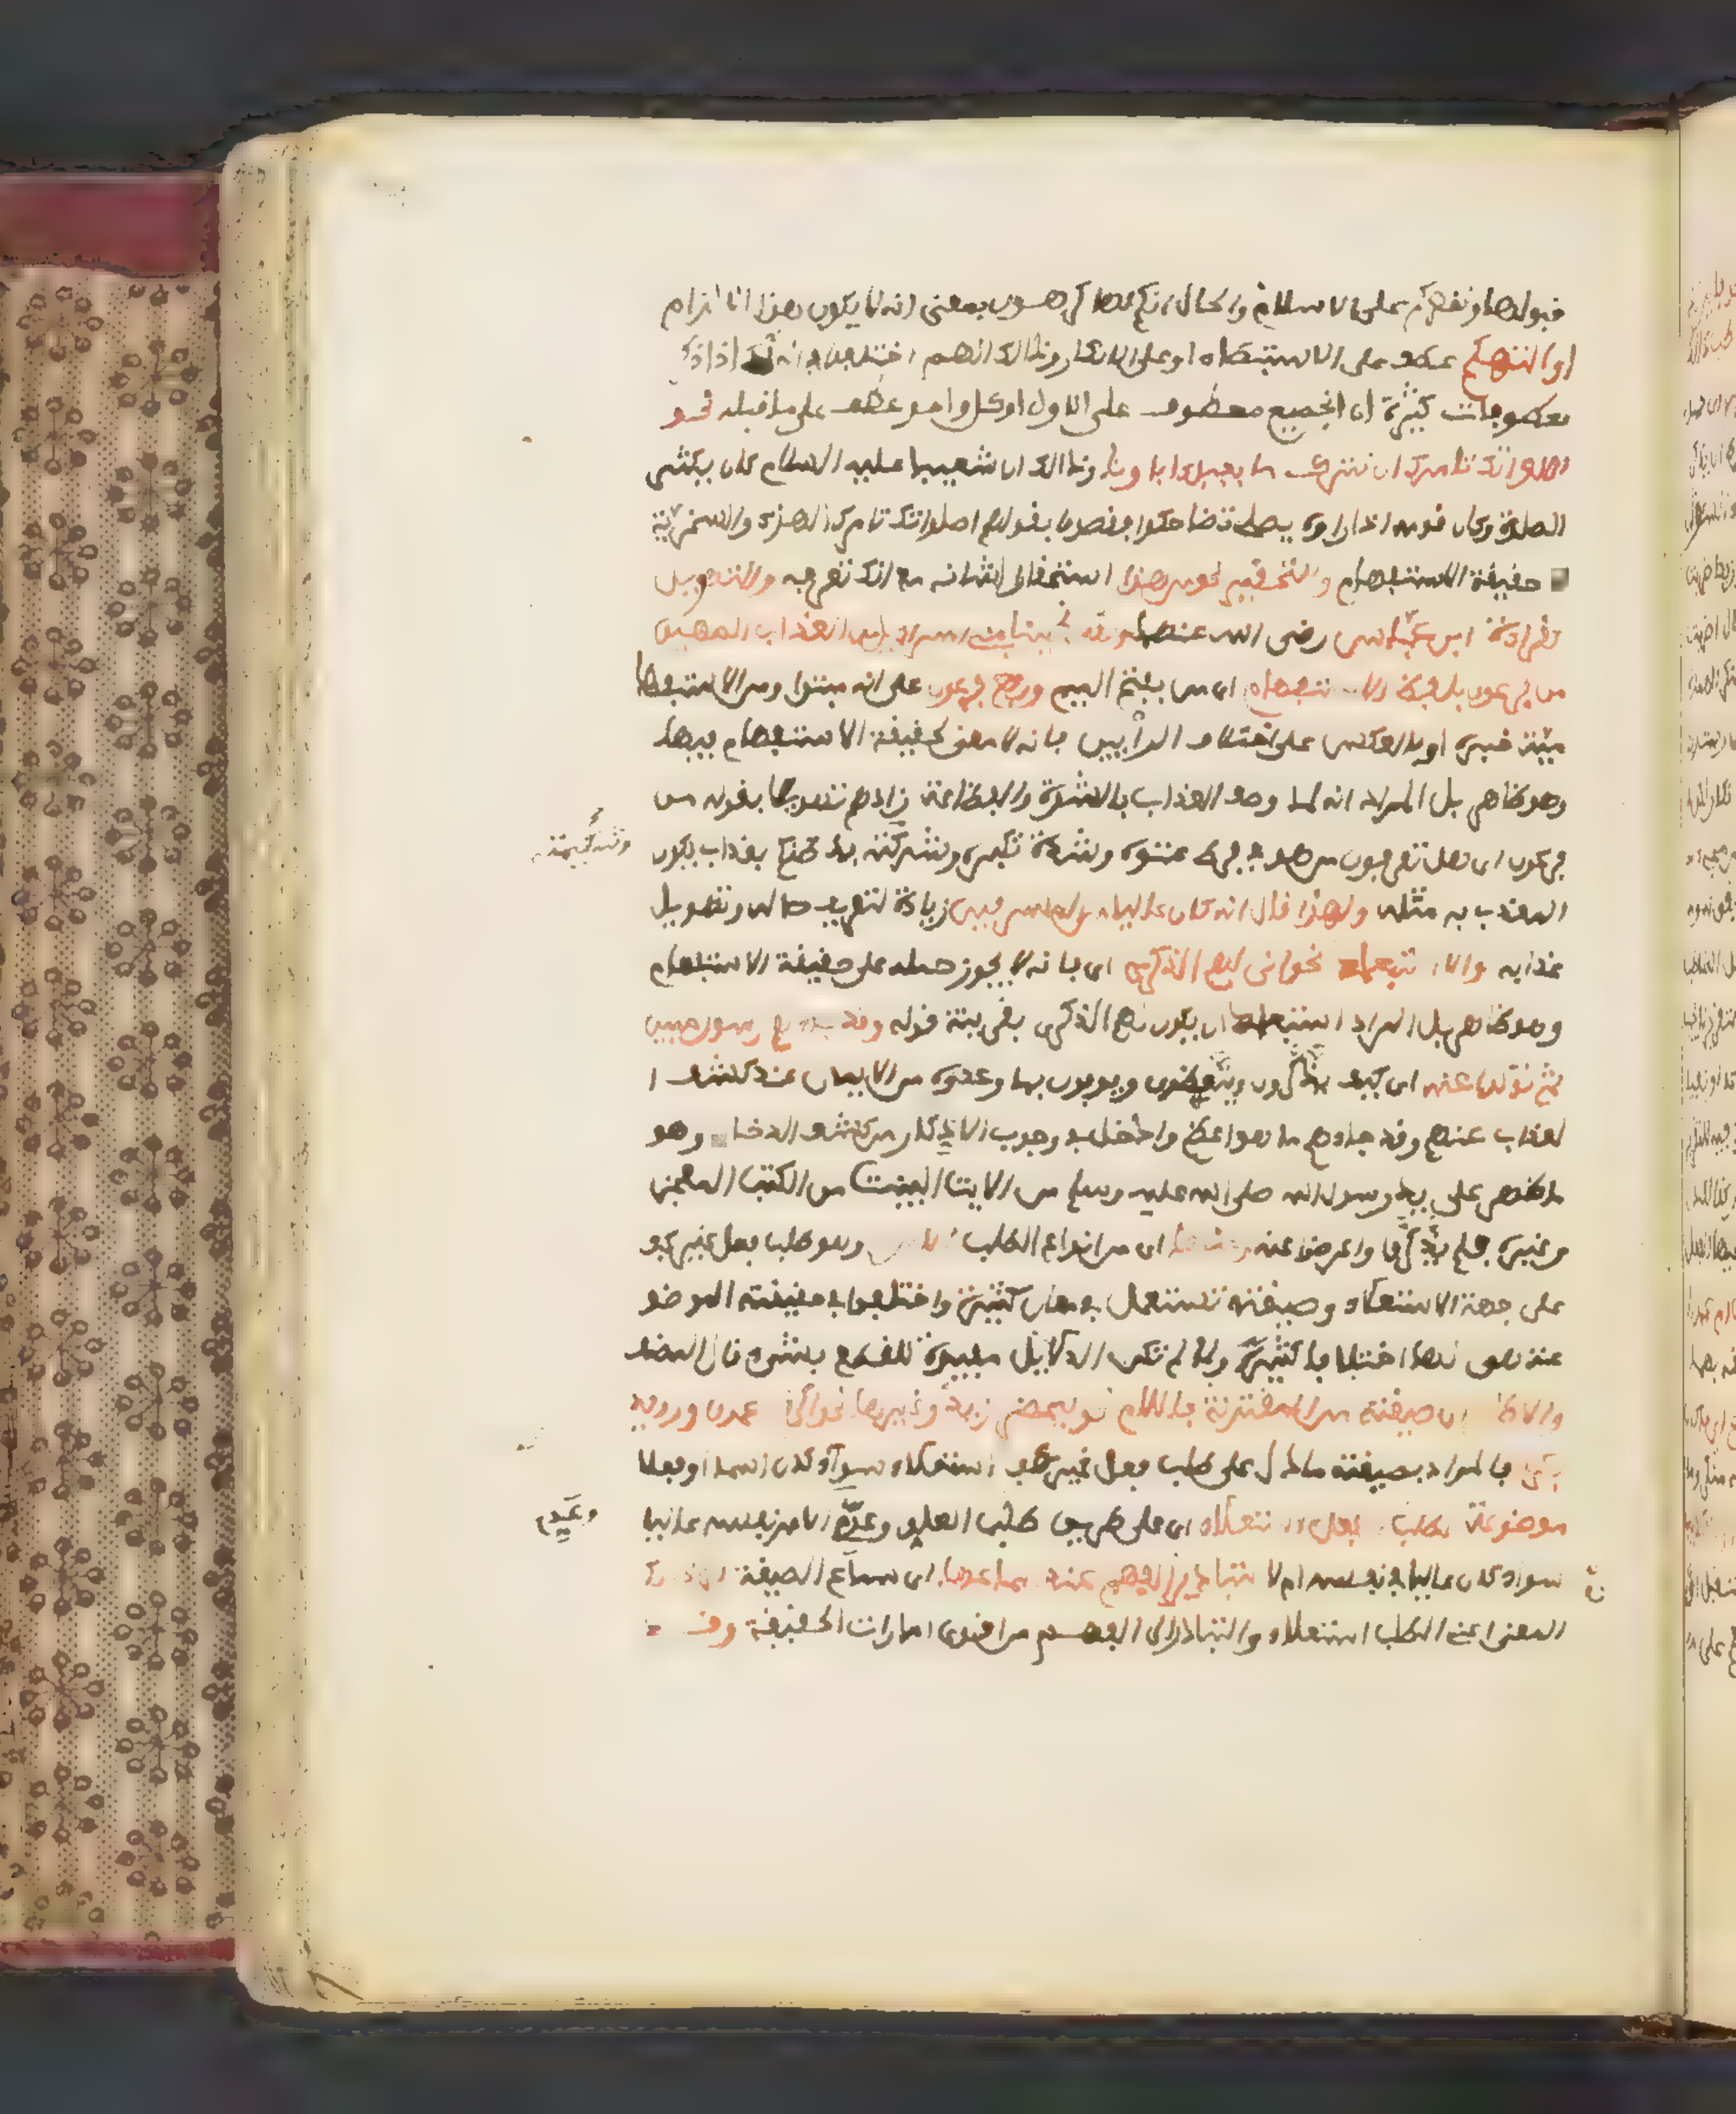 قبولها ونقهركم على الاسلام والحال انكم لها كرهون بمعنى انه لا يكون هذا الالزام
او التهكم عطف على الاستبطاء او على الانكار وذلك انهم اختلفوا في انه اذا ذكر
معطوفات كثيرة ان الجميع معطوف على الاول او كل واحد عطف على ما قبله نحو
اصلواتك تامرك ان نترك ما يعبد اباونا وذلك ان شعيبا عليه السلام كان يكثر
الصلوة وكان قومه اذا راوه يصلى تضاحكوا فقصدوا بقولهم اصلواتك تامرك الهزء والسخرية
حقيقة الاستفهام والتحقير نحو من هذا استحقارا بشانه مع انك تعرفه والتهويل
كقراءة ابن عباس رضى الله عنهما ولقد نجينا بنى اسراءيل من العذاب المهين
من فرعون بلفظ الاستفهام اى من بفتح الميم ورفع فرعون على انه مبتدا ومن الاستفها
مية خبره او بالعكس على اختلاف الرأيين فانه لا معنى لحقيقة الاستفهام فيها
وهو ظاهر بل المراد انه لما وصف العذاب بالشدة والفظاعة زادهم تهويلا بقوله من
فرعون اى هل تعرفون من هو في فرط عتوه وشدة تكبره وشركته فما ظنكم بعذاب يكون
المعذب به مثله ولهذا قال انه كان عاليا من المسرفين زيادة لتعريف حاله وتهويل
عذابه والاستبعاد نحو انى لهم الذكرى اى فانه لا يجوز حمله على حقيقة الاستفهام
وهو ظاهر بل المراد استبعاد ان يكون لهم الذكرى بقرينة قوله وقد جاءهم رسول مبين
ثم تولوا عنه اى كيف يذكرون ويتعظون ويوفون بما وعدوه من الايمان عند كشف ا
لعذاب عنهم وقد جاءهم ما هو اعظم وادخل في وجوب الاذكار من كشف الدخان وهو
ما ظهر على يد رسول الله صلى الله عليه وسلم من الايت البينت من الكتب المعجز
وغيره فلم يذكروا واعرضوا عنه ومنها اى من انواع الطلب الامر وهو طلب فعل غير كف
على جهة الاستعلاء وصيغته تستعمل في معان كثيرة واختلفوا في حقيقته الموضو
عة هى لها اختلافا كثيرا ولما لم تكن الدلايل مفيدة للقطع بشىء قال المصنف
والاظهر ان صيغته من المقترنة باللام نحو ليحضر زيد وغيرها نحو اكرم عمرا ورويد
بكرا فالمراد بصيغته ما دل على طلب فعل غير كف استعلاء سواء كان اسما او فعلا
موضوعة لطلب الفعل استعلاء اى على طريق طلب العلو وعد الامر نفسه عاليا
سواء كان عاليا في نفسه ام لا لتبادر الفهم عند سماعها اى سماع الصيغة الى ذلك
المعنى اعنى الطلب استعلاء والتبادر الى الفهم من اقوى امارات الحقيقة وقد